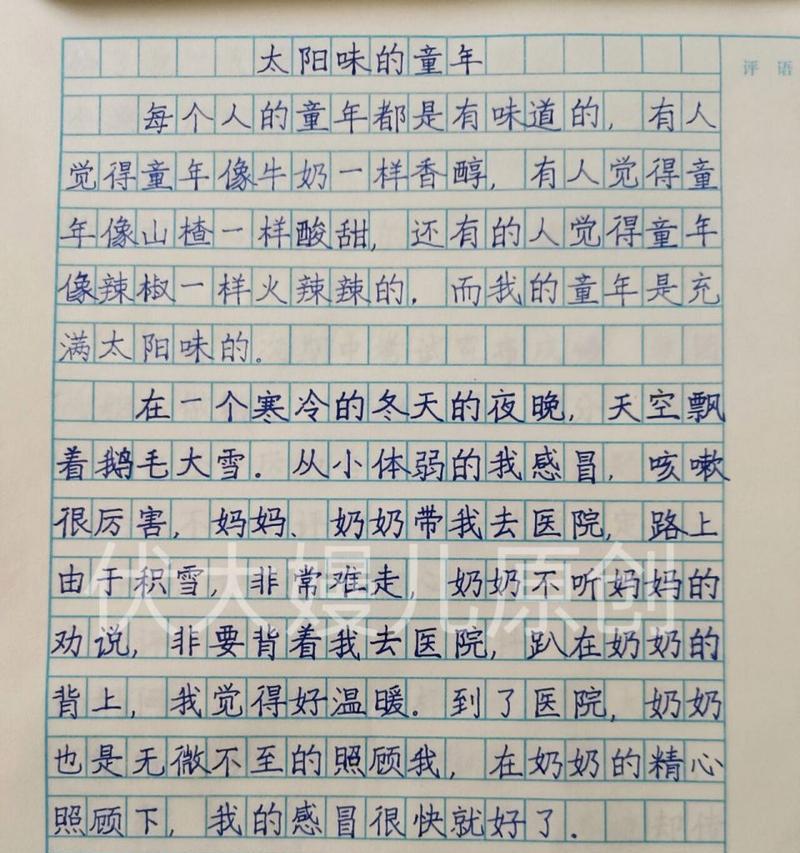 太阳味的童年
评语
每个人的童年都是有味道的，有人
觉得童年像牛奶一样香醇，有人觉得童
年像山楂一样酸甜，还有的人觉得童年
像辣椒一样火辣辣的．而我的童年是充
满太阳味的．
在一个寒冷的冬天的夜晚，天空飘
着鹅毛大雪．从小体弱的我感冒，咳嗽
很厉害，妈妈、奶奶带我去医院，路上
由于积雪，非常难走，奶奶不听妈妈的
劝说，非要背着我去医院，趴在奶奶的
背上，我觉得好温暖．到了医院，奶奶
也是无微不至的照顾我，在奶奶的精心
照顾下，我的感冒很快就好了．
伏大嫚儿原创